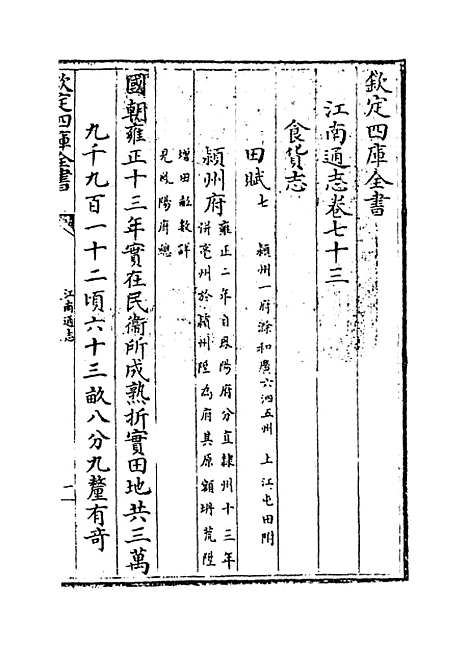 欽定四庫全書
江南通志卷七十三
食貨志
田賦七 潁州一府滁和廣六泗五州 上江屯田附
潁州府 雍正二年自鳳陽府分直隷州十三年
併亳州於潁州陞為府其原額坍荒陞
增田畝數詳
見鳳陽府總
國朝雍正十三年實在民衞所成熟折實田地共三萬
九千九百一十二頃六十三畝八分九釐有奇
欽定四庫全書
江南通志
一